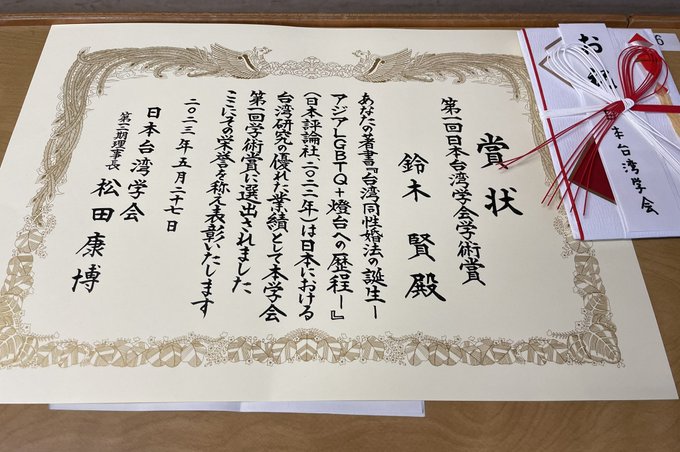 賞状
第一回日本台湾学会学術賞
鈴木 賢 殿
あなたの著書『台湾同性婚法の誕生ー
アジアLGBTQ+燈台への歴程ー』
(日本評論社、二〇二二年)は日本における
台湾研究の優れた業績として本学会
第一回学術賞に選出されました
ここにその栄誉を称え表彰いたします
二〇二三年五月二十七日
日本台湾学会
理事長 松田康博
お
本台湾学会
6